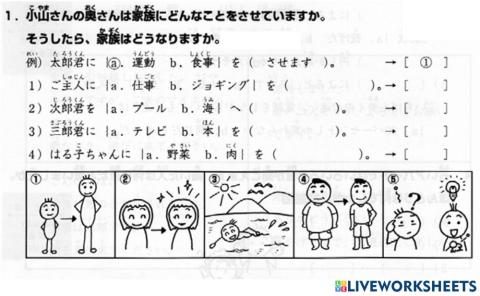 1．小山さんの奥さんは家族にどんなことをさせていますか。
そうしたら、家族はどうなりますか。
例）太郎君に｛ⓐ．運動　b．食事｝を（ させます ）。→［ ① ］
1）ご主人に｛a．仕事　b．ジョギング｝を（　　）。→［　　］
2）次郎君を｛a．プール　b．海｝へ（　　）。→［　　］
3）三郎君に｛a．テレビ　b．本｝を（　　）。→［　　］
4）はる子ちゃんに｛a．野菜　b．肉｝を（　　）。→［　　］
① ② ③ ④ ⑤
?
LIVEWORKSHEETS